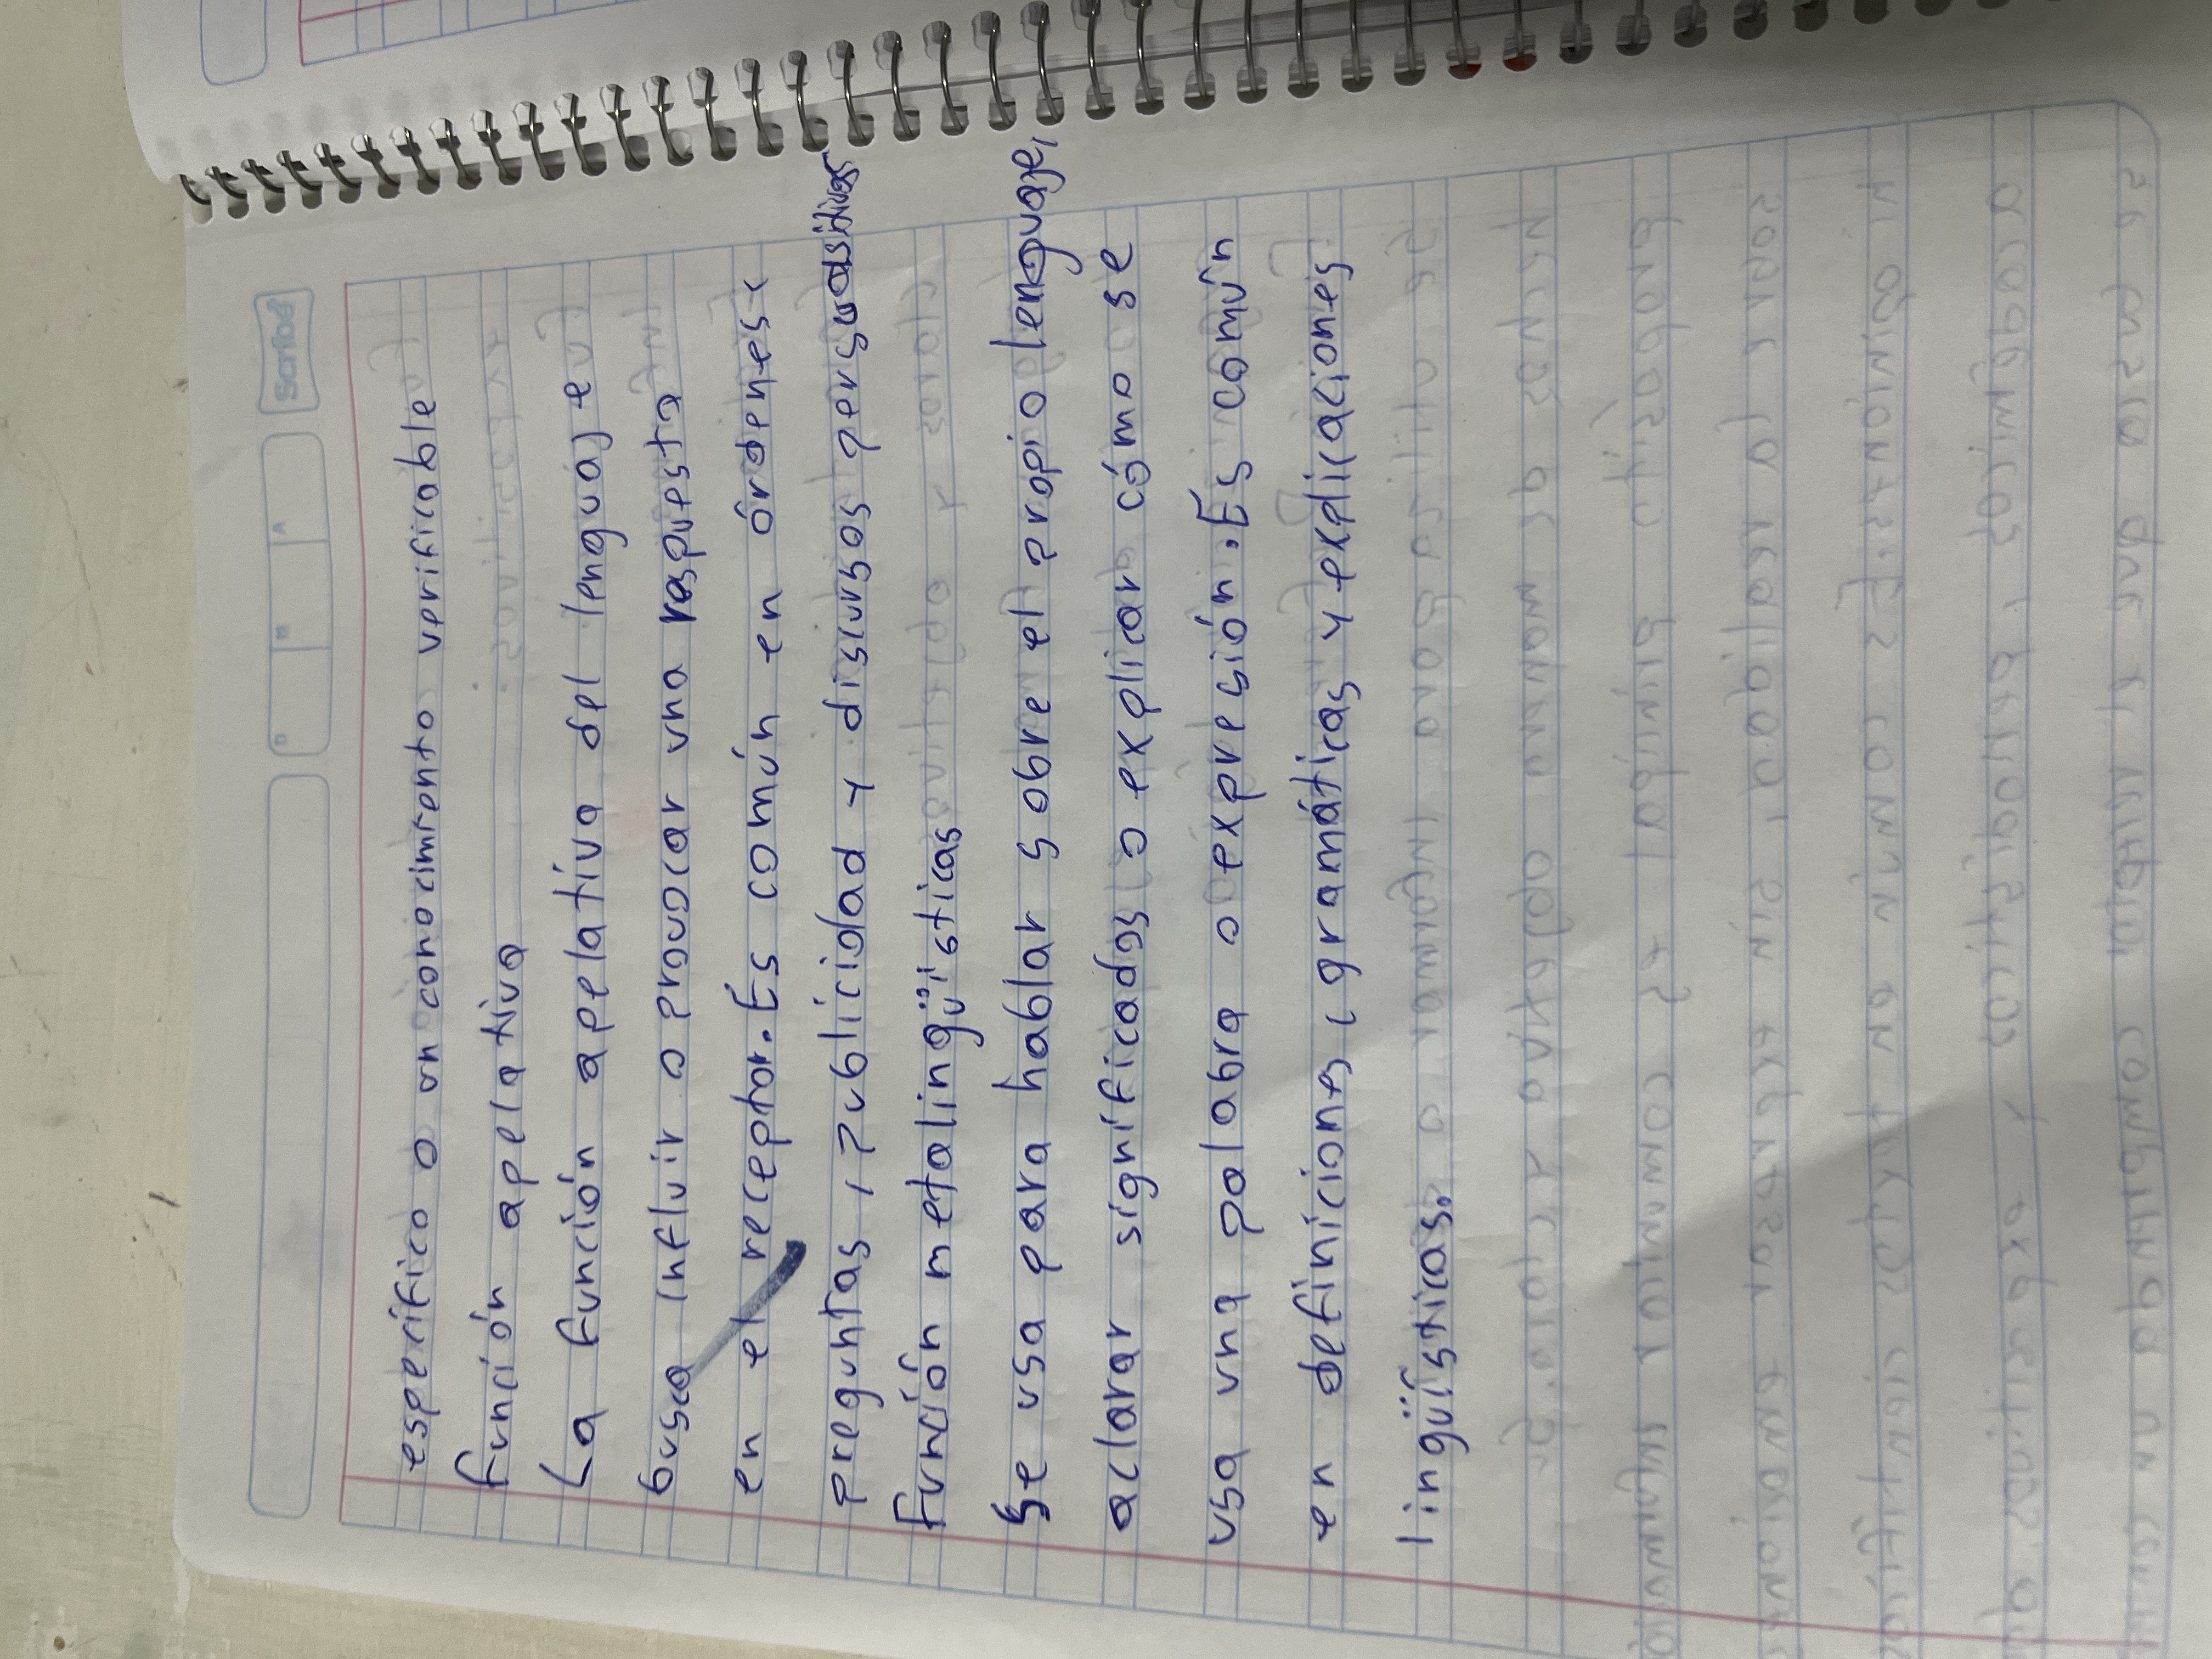 Scribe
específico o un conocimiento verificable
función apelativa
La función apelativa del lenguaje
busca influir o provocar una respuesta
en el receptor. Es común en órdenes,
preguntas, publicidad y discursos persuasivos
función metalingüísticas
Se usa para hablar sobre el propio lenguaje,
aclarar significados o explicar cómo se
usa una palabra o expresión. Es común
en definiciones, gramáticas y explicaciones
lingüísticas.